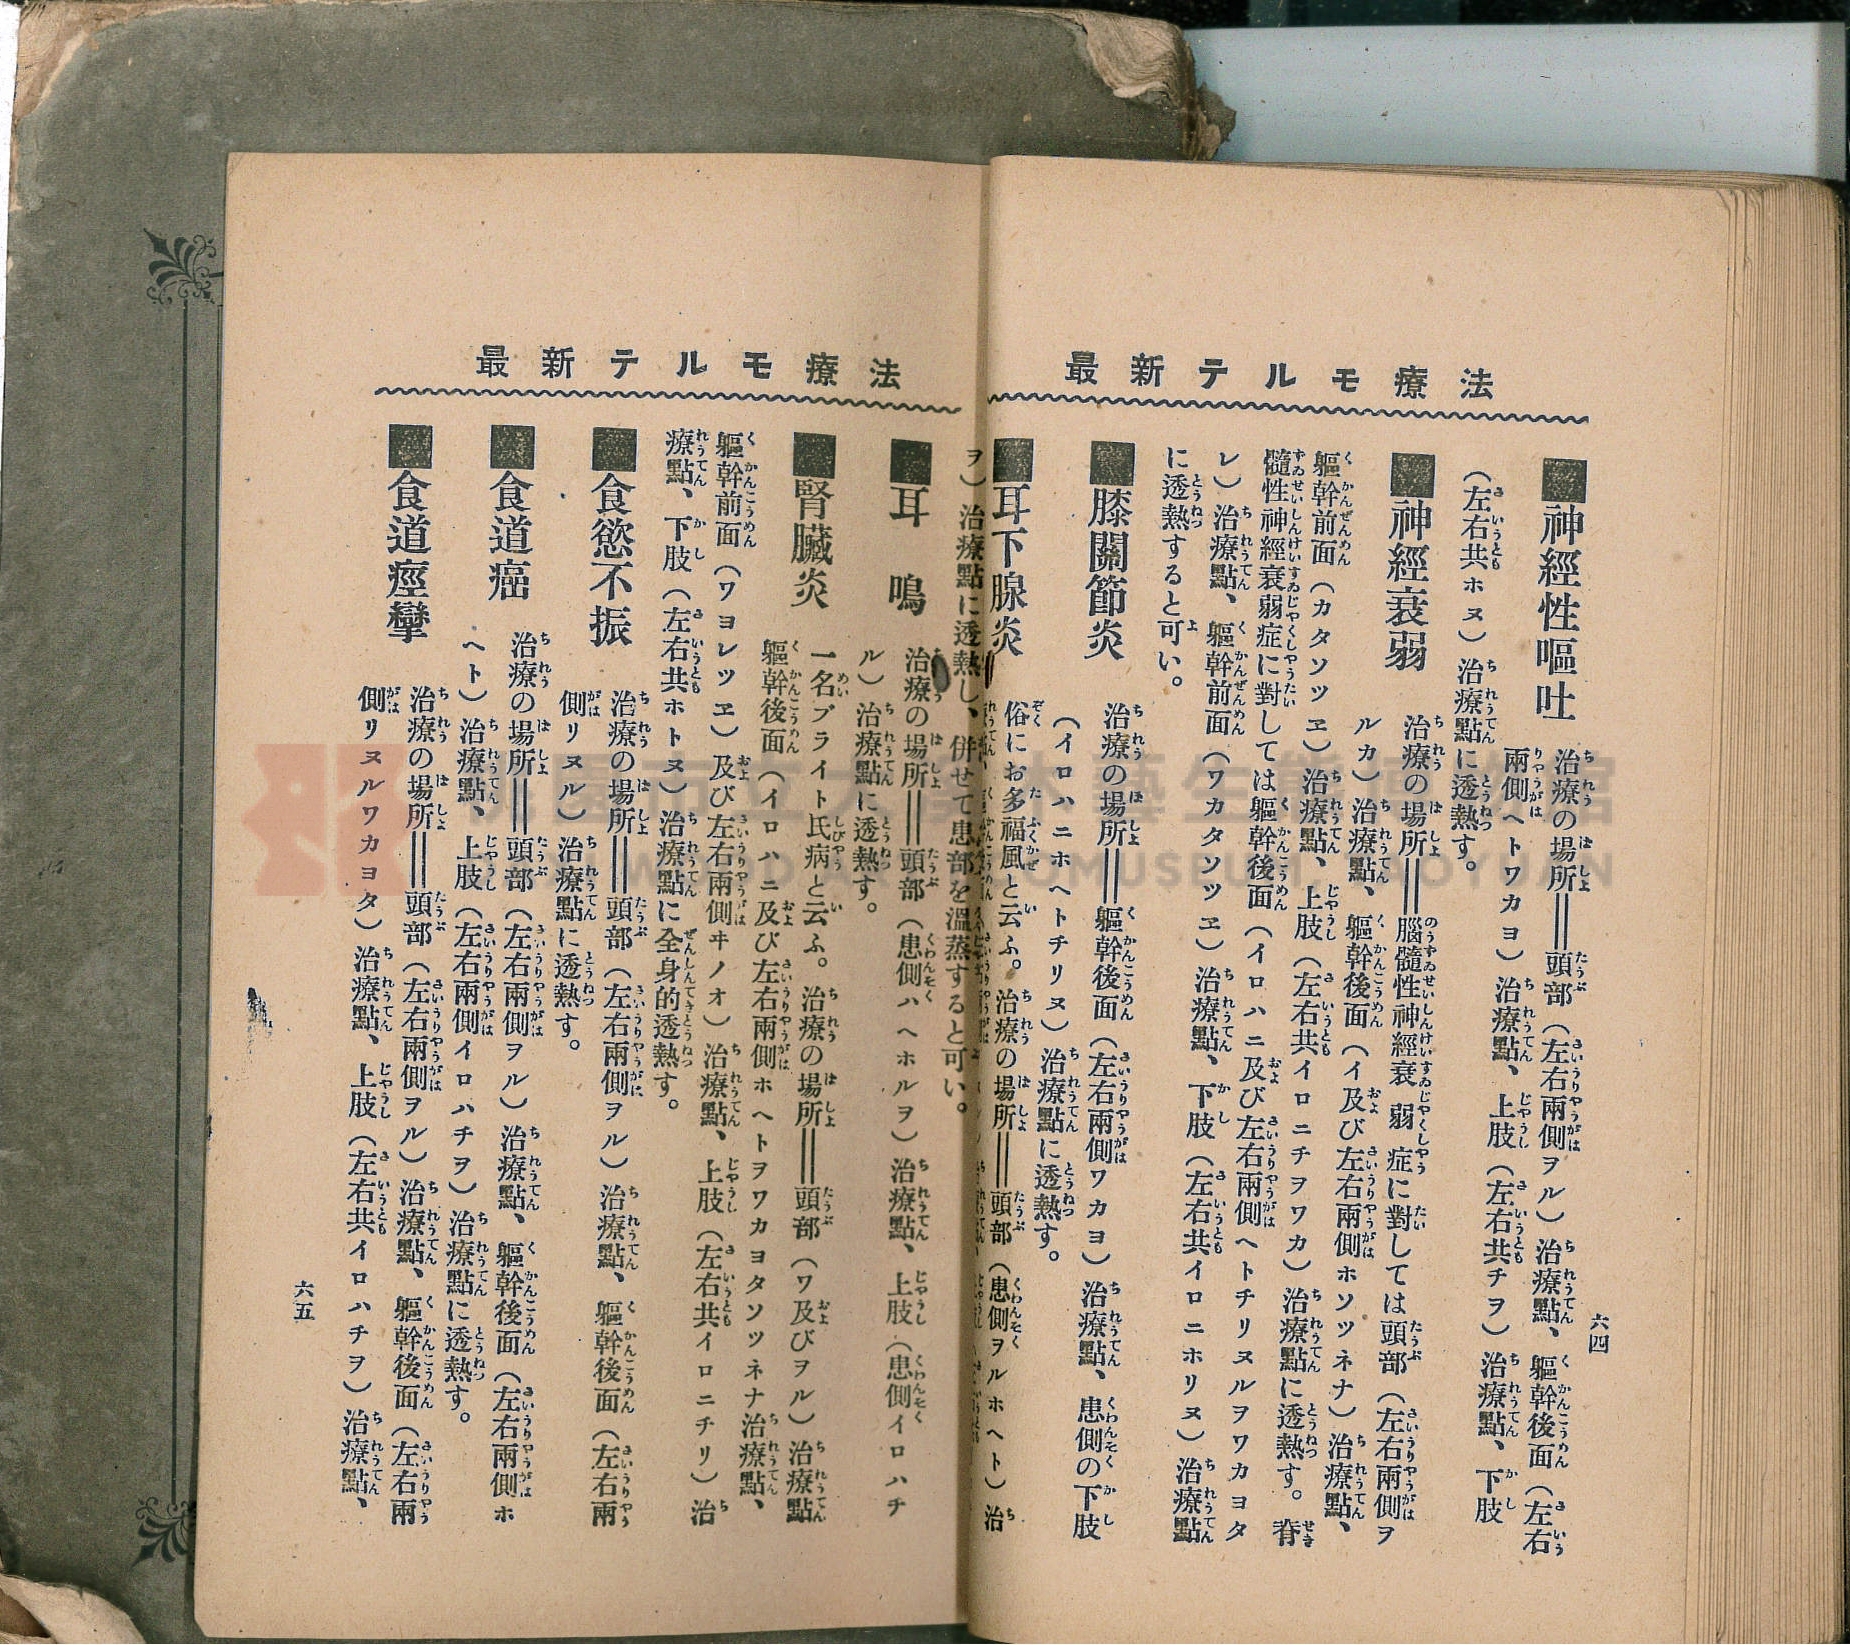 最新テルモ療法
六四
■神經性嘔吐
治療の場所‖頭部(左右兩側ヲル)治療點、軀幹後面(左右
兩側ヘトワカヨ)治療點、上肢(左右共チヲ)治療點、下肢
(左右共ホヌ)治療點に透熱す。
■神經衰弱
治療の場所‖腦髓性神經衰弱症に對しては頭部(左右兩側ヲ
ルカ)治療點、軀幹後面(イ及び左右兩側ホソツネナ)治療點、
軀幹前面(カタソツヱ)治療點、上肢(左右共イロニチヲワカ)治療點に透熱す。脊
髓性神經衰弱症に對しては軀幹後面(イロハニ及び左右兩側ヘトチリヌルヲワカヨタ
レ)治療點、軀幹前面(ワカタソツヱ)治療點、下肢(左右共イロニホリヌ)治療點
に透熱すると可い。
■膝關節炎
治療の場所‖軀幹後面(左右兩側ワカヨ)治療點、患側の下肢
(イロハニホヘトチリヌ)治療點に透熱す。
■耳下腺炎
俗にお多福風と云ふ。治療の場所‖頭部(患側ヲルホヘト)治
最新テルモ療法
ヲ)治療點に透熱し、併せて患部を溫蒸すると可い。
■耳鳴
治療の場所‖頭部(患側ハヘホルヲ)治療點、上肢(患側イロハチ
ル)治療點に透熱す。
■腎臟炎
一名ブライト氏病と云ふ。治療の場所‖頭部(ワ及びヲル)治療點
軀幹後面(イロハニ及び左右兩側ホヘトヲワカヨタソツネナ治療點、
軀幹前面(ワヨレツヱ)及び左右兩側ヰノオ)治療點、上肢(左右共イロニチリ)治
療點、下肢(左右共ホトヌ)治療點に全身的透熱す。
■食慾不振
治療の場所‖頭部(左右兩側ヲル)治療點、軀幹後面(左右兩
側リヌル)治療點に透熱す。
■食道癌
治療の場所‖頭部(左右兩側ヲル)治療點、軀幹後面(左右兩側ホ
ヘト)治療點、上肢(左右兩側イロハチヲ)治療點に透熱す。
■食道痙攣
治療の場所‖頭部(左右兩側ヲル)治療點、軀幹後面(左右兩
側リヌルワカヨタ)治療點、上肢(左右共イロハチヲ)治療點、
六五